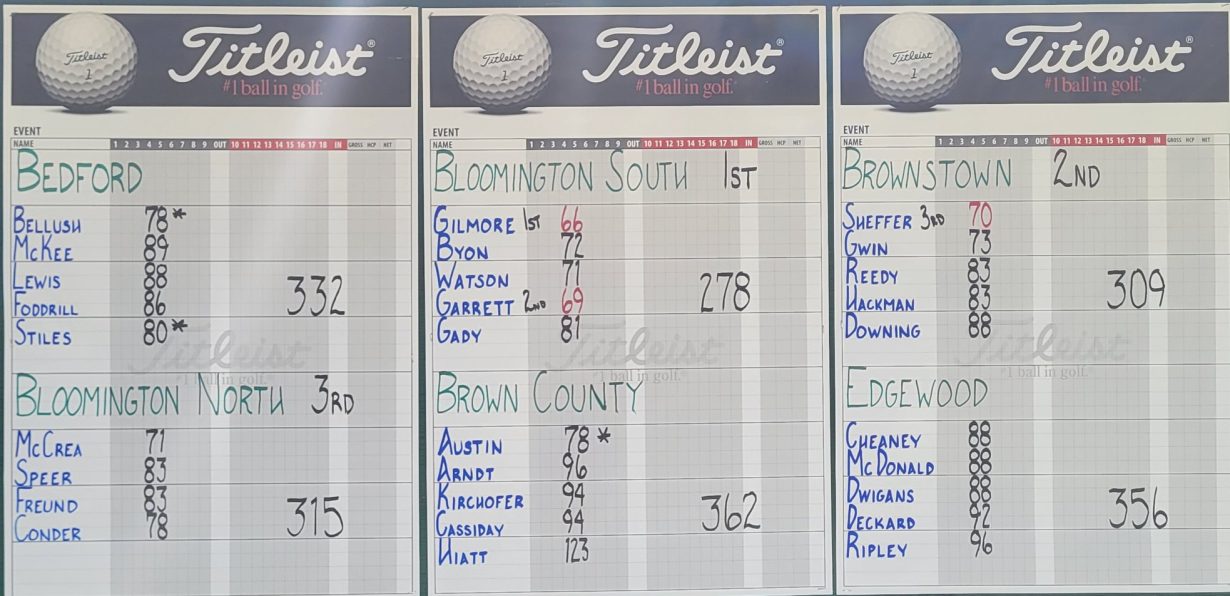 Titleist®
#1 ball in golf.
EVENT
NAME 1 2 3 4 5 6 7 8 9 OUT 10 11 12 13 14 15 16 17 18 IN GROSS HCP NET
BEDFORD
BELLUSH 78*
MCKEE 89
LEWIS 88
FODDRILL 86
332
STILES 80*
Titleist
#1 ball in golf.
BLOOMINGTON NORTH 3RD
MCCREA 71
SPEER 83
FREUND 83
CONDER 78
315
Titleist®
#1 ball in golf.
EVENT
NAME 1 2 3 4 5 6 7 8 9 OUT 10 11 12 13 14 15 16 17 18 IN GROSS HCP NET
BLOOMINGTON SOUTH 1ST
GILMORE 1ST 66
BYON 72
WATSON 71
GARRETT 2ND 69
278
GADY 81
Titleist
#1 ball in golf.
BROWN COUNTY
AUSTIN 78*
ARNDT 96
KIRCHOFER 94
CASSIDAY 94
362
HIATT 123
Titleist®
#1 ball in golf.
EVENT
NAME 1 2 3 4 5 6 7 8 9 OUT 10 11 12 13 14 15 16 17 18 IN GROSS HCP NET
BROWNSTOWN 2ND
SHEFFER 3RD 70
GWIN 73
REEDY 83
HACKMAN 83
309
DOWNING 88
Titleist
#1 ball in golf.
EDGEWOOD
CHEANEY 88
MCDONALD 88
DWIGANS 88
DECKARD 92
356
RIPLEY 96